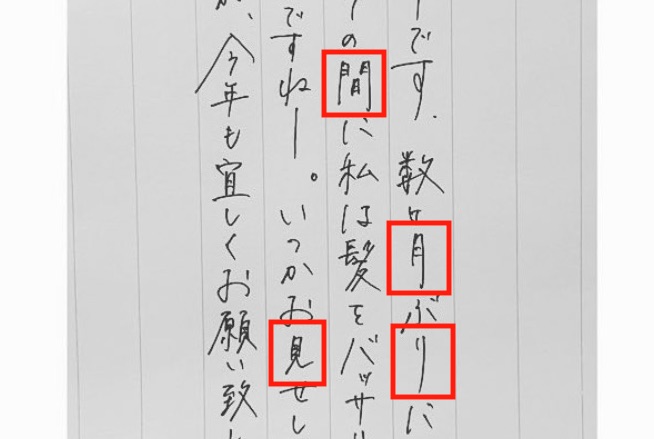 ーです．数ヶ月ぶりに
の間に私は髪をバッサリ
ですねー。いつかお見せし
が、今年も宜しくお願い致し